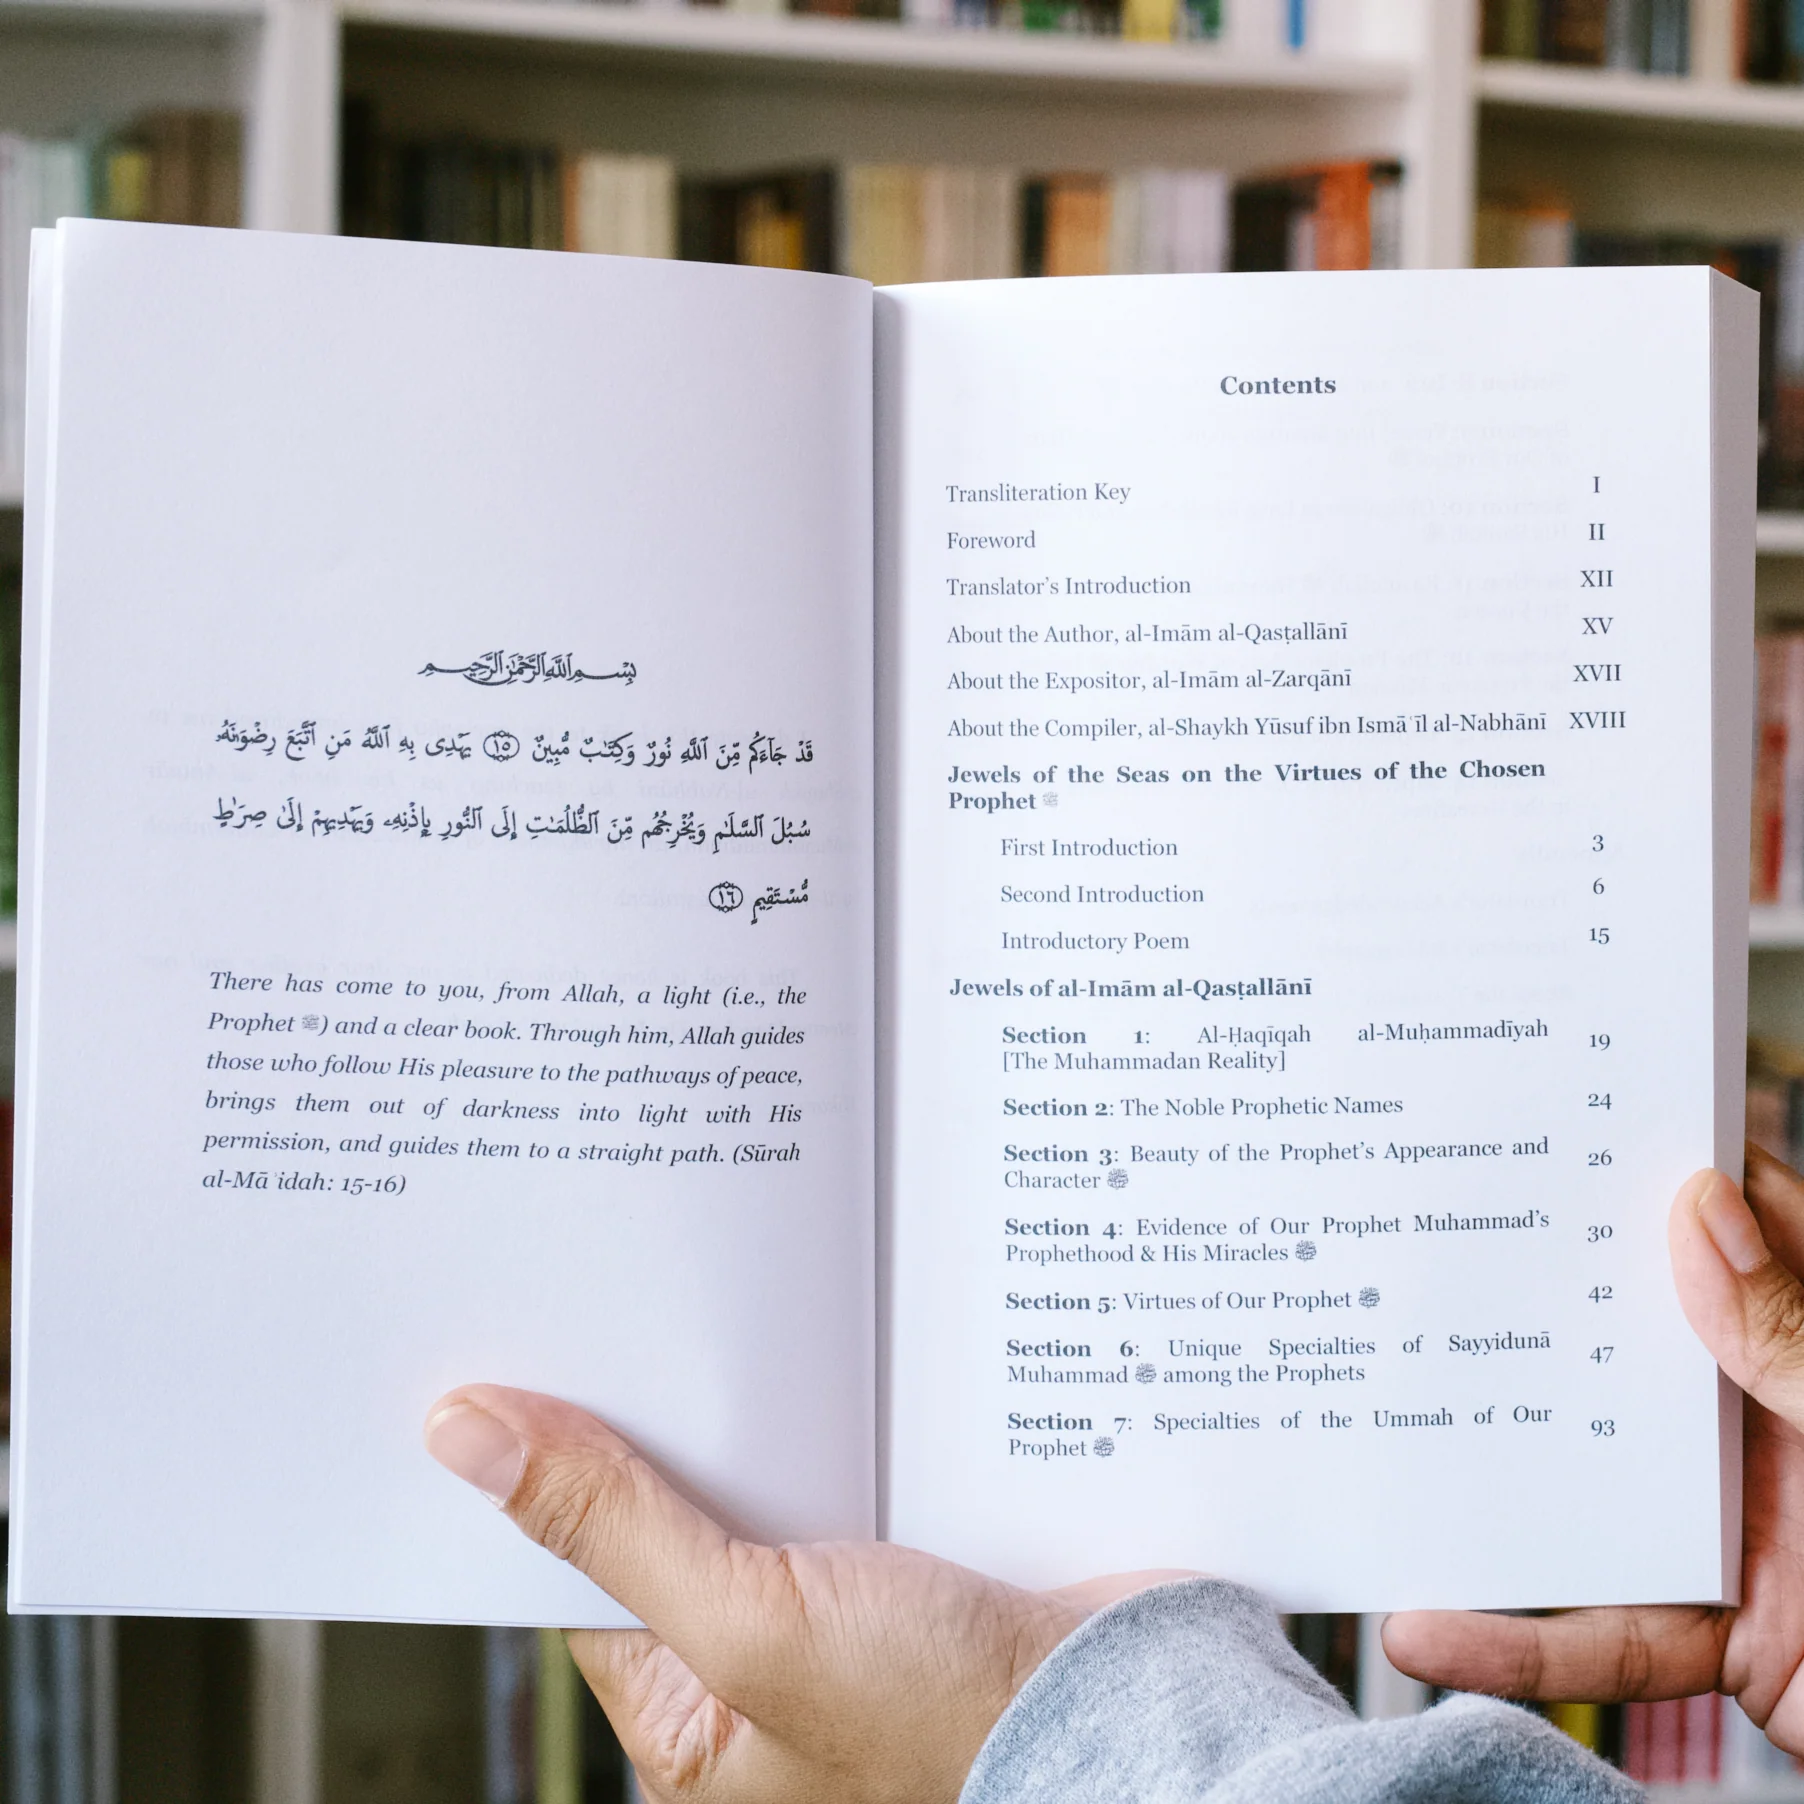 بِسْمِ اللَّهِ الرَّحْمَٰنِ الرَّحِيمِ
قَدْ جَآءَكُم مِّنَ ٱللَّهِ نُورٌ وَكِتَـٰبٌ مُّبِينٌ ١٥ يَهْدِى بِهِ ٱللَّهُ مَنِ ٱتَّبَعَ رِضْوَٰنَهُۥ
سُبُلَ ٱلسَّلَـٰمِ وَيُخْرِجُهُم مِّنَ ٱلظُّلُمَـٰتِ إِلَى ٱلنُّورِ بِإِذْنِهِۦ وَيَهْدِيهِمْ إِلَىٰ صِرَٰطٍ
مُّسْتَقِيمٍ ١٦
There has come to you, from Allah, a light (i.e., the
Prophet ﷺ) and a clear book. Through him, Allah guides
those who follow His pleasure to the pathways of peace,
brings them out of darkness into light with His
permission, and guides them to a straight path. (Sūrah
al-Māʾidah: 15-16)
Contents
Transliteration Key I
Foreword II
Translator’s Introduction XII
About the Author, al-Imām al-Qasṭallānī XV
About the Expositor, al-Imām al-Zarqānī XVII
About the Compiler, al-Shaykh Yūsuf ibn Ismāʿīl al-Nabhānī XVIII
Jewels of the Seas on the Virtues of the Chosen
Prophet ﷺ
First Introduction 3
Second Introduction 6
Introductory Poem 15
Jewels of al-Imām al-Qasṭallānī
Section 1: Al-Ḥaqīqah al-Muḥammadīyah 19
[The Muhammadan Reality]
Section 2: The Noble Prophetic Names 24
Section 3: Beauty of the Prophet’s Appearance and 26
Character ﷺ
Section 4: Evidence of Our Prophet Muhammad’s 30
Prophethood & His Miracles ﷺ
Section 5: Virtues of Our Prophet ﷺ 42
Section 6: Unique Specialties of Sayyidunā 47
Muhammad ﷺ among the Prophets
Section 7: Specialties of the Ummah of Our 93
Prophet ﷺ